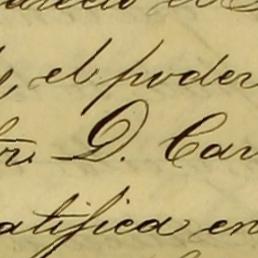 el poder
D. Car
atifica en